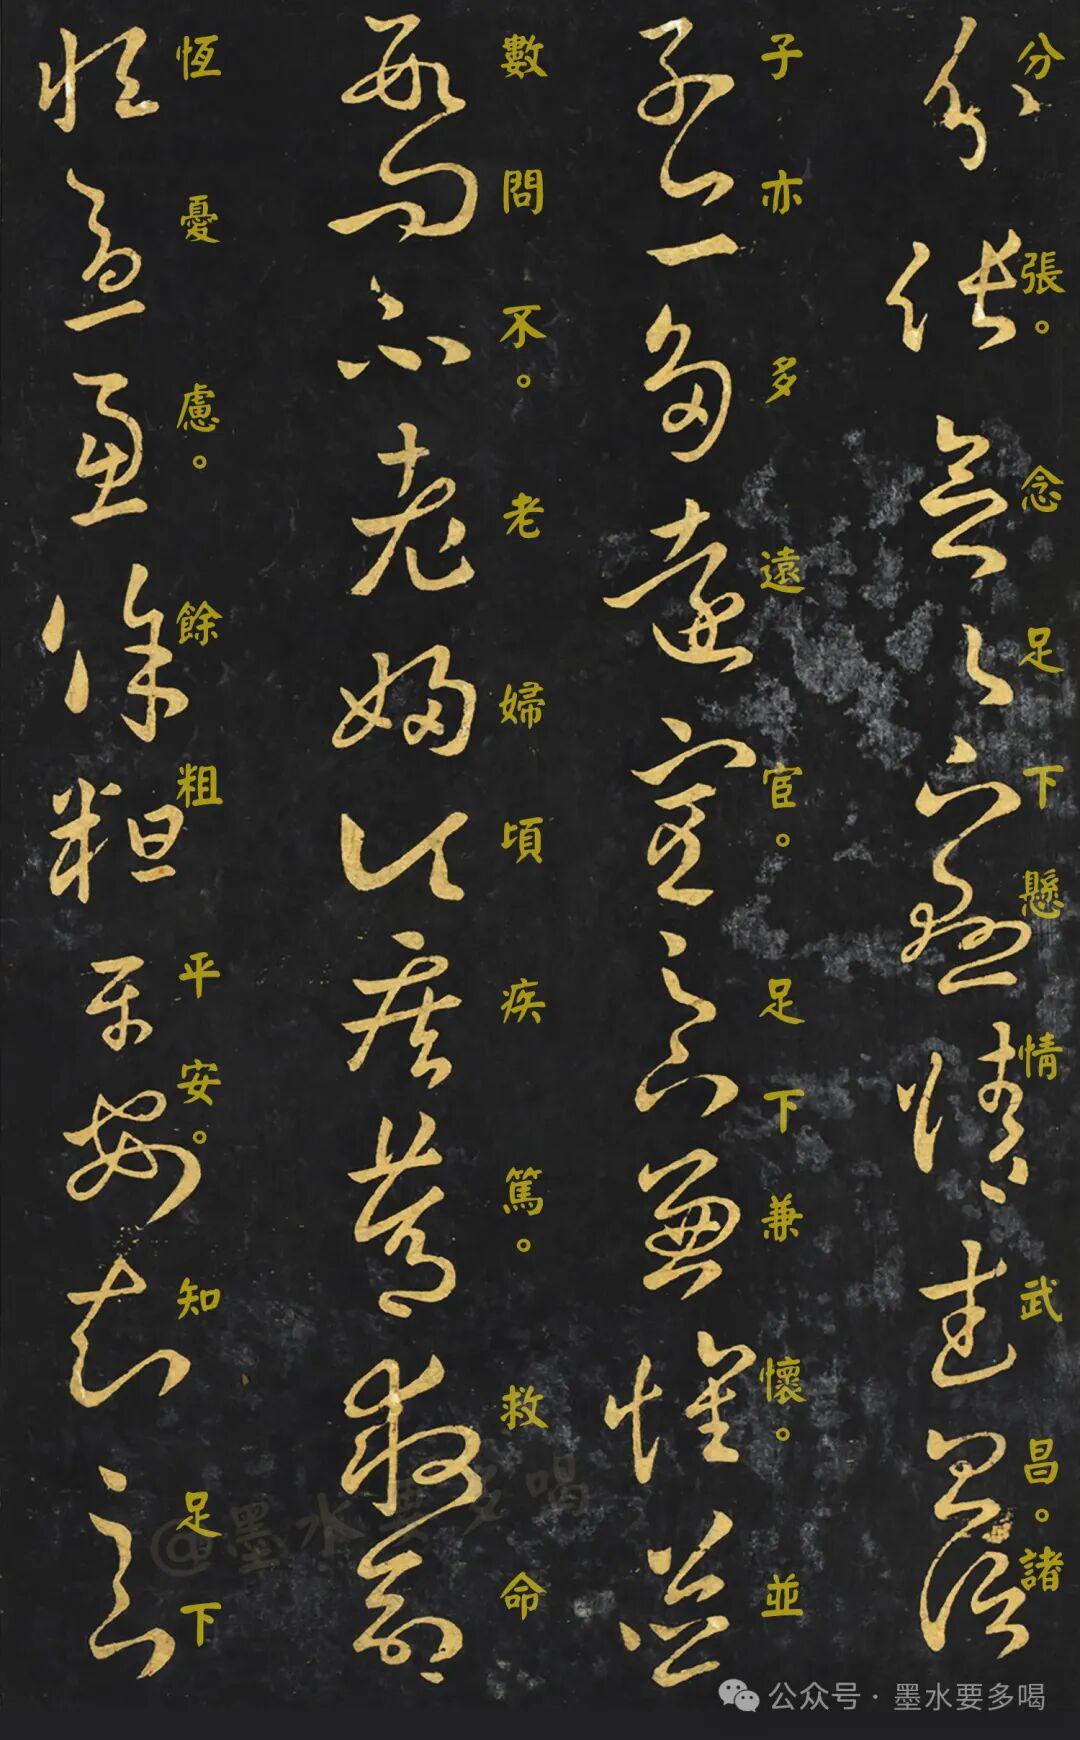 分張。念足下懸情武昌。諸
子亦多遠宦。足下兼懷。並
數問不。老婦頃疾篤。救命
恆憂慮。餘粗平安。知足下
@墨水要多喝
公众号·墨水要多喝